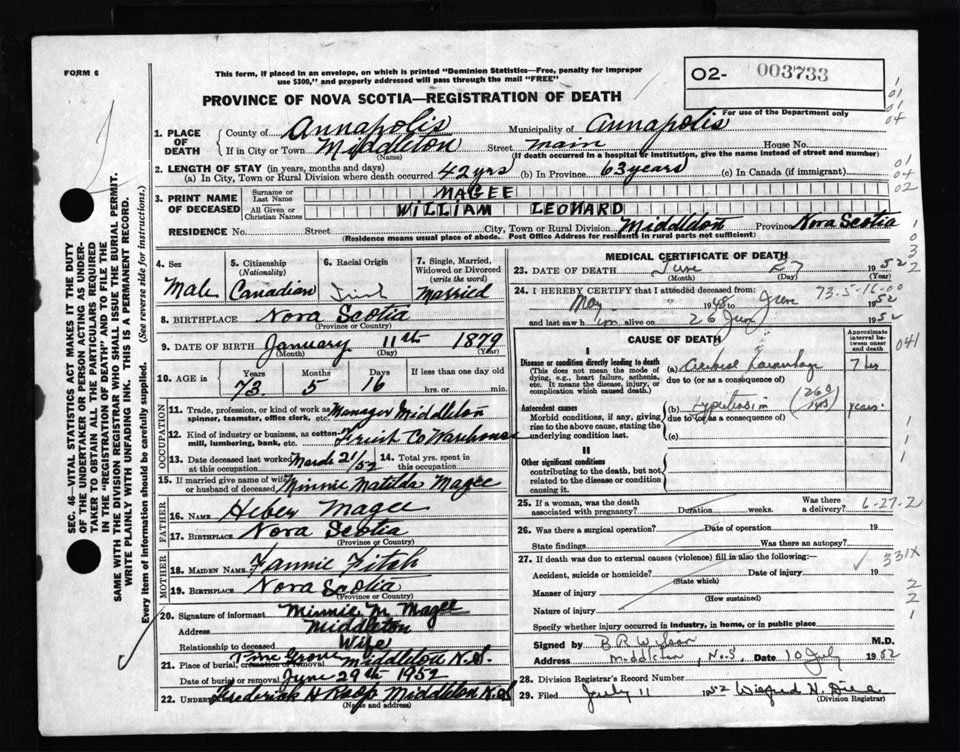 FORM 6
This form, if placed in an envelope, on which is printed "Dominion Statistics—Free, penalty for improper
use $300," and properly addressed will pass through the mail "FREE"
O2- 003733
PROVINCE OF NOVA SCOTIA—REGISTRATION OF DEATH
For use of the Department only
01
01
04
1. PLACE OF DEATH
County of Annapolis Municipality of Annapolis
If in City or Town Middleton Street main House No.
(Name) (If death occurred in a hospital or institution, give the name instead of street and number)
2. LENGTH OF STAY (in years, months and days)
(a) In City, Town or Rural Division where death occurred 42 yrs (b) In Province 63 years (c) In Canada (if immigrant)
01
04
02
3. PRINT NAME OF DECEASED
Surname or Last Name MAGEE
All Given or Christian Names WILLIAM LEONARD
RESIDENCE No. Street City, Town or Rural Division Middleton Province Nova Scotia
(Residence means usual place of abode. Post Office Address for residents in rural parts not sufficient)
4. Sex Male
5. Citizenship (Nationality) Canadian
6. Racial Origin
7. Single, Married, Widowed or Divorced (write the word) Married
8. BIRTHPLACE Nova Scotia
(Province or Country)
9. DATE OF BIRTH January 11th 1879
(Month) (Day) (Year)
10. AGE in Years Months Days If less than one day old
73 5 16 hrs. or min.
OCCUPATION
11. Trade, profession, or kind of work as spinner, teamster, office clerk, etc. Manager Middleton
12. Kind of industry or business, as cotton-mill, lumbering, bank, etc. Fruit Co Warehouse
13. Date deceased last worked at this occupation March 21/52 14. Total yrs. spent in this occupation
15. If married give name of wife or husband of deceased Minnie Matilda Magee
FATHER
16. NAME Heber Magee
17. BIRTHPLACE Nova Scotia
(Province or Country)
MOTHER
18. MAIDEN NAME Fannie Fitch
19. BIRTHPLACE Nova Scotia
(Province or Country)
20. Signature of informant Minnie M. Magee
Address Middleton
Relationship to deceased Wife
21. Place of burial, cremation or removal Pine Grove Middleton N.S.
Date of burial or removal June 29th 1952
22. UNDERTAKER Frederick H Roop Middleton N.S
(Name and address)
MEDICAL CERTIFICATE OF DEATH
23. DATE OF DEATH June 27 1952
(Month) (Day)
24. I HEREBY CERTIFY that I attended deceased from 73.5-16-00
May 1948 to June 1952
and last saw him alive on 26 June 1952
CAUSE OF DEATH
Approximate interval between onset and death
041
I
Disease or condition directly leading to death
(This does not mean the mode of dying, e.g., heart failure, asthenia, etc. It means the disease, injury, or complication which caused death.)
(a) Cerebral Haemorrhage 7 hrs
due to (or as a consequence of)
Antecedent causes
Morbid conditions, if any, giving rise to the above cause, stating the underlying condition last.
(b) Hypertension years
due to (or as a consequence of)
(c)
II
Other significant conditions
contributing to the death, but not related to the disease or condition causing it.
25. If a woman, was the death associated with pregnancy? Duration weeks. Was there a delivery? 6-27-2
26. Was there a surgical operation? Date of operation 19
State findings Was there an autopsy?
27. If death was due to external causes (violence) fill in also the following:— 331X
Accident, suicide or homicide? Date of injury 19
(State which)
Manner of injury
(How sustained)
Nature of injury
Specify whether injury occurred in industry, in home, or in public place
Signed by M.D.
Address Middleton, N.S. Date 10 July 1952
28. Division Registrar's Record Number
29. Filed July 11 1952
(Division Registrar)
SEC. 46—VITAL STATISTICS ACT MAKES IT THE DUTY
OF THE UNDERTAKER OR PERSON ACTING AS UNDER-
TAKER TO OBTAIN ALL THE PARTICULARS REQUIRED
IN THE "REGISTRATION OF DEATH" AND TO FILE THE
SAME WITH THE DIVISION REGISTRAR WHO SHALL ISSUE THE BURIAL PERMIT.
WRITE PLAINLY WITH UNFADING INK. THIS IS A PERMANENT RECORD.
Every item of information should be carefully supplied. (See reverse side for instructions.)